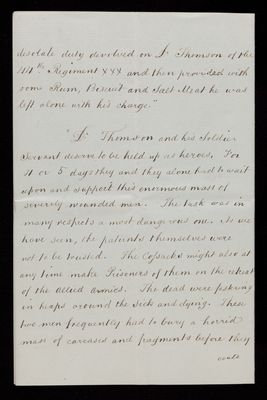 desolate duty devolved on Dr Thomson of the
44th Regiment XXX and then provided with
some Rum, Biscuit and Salt Meat he was
left alone with his charge."
"Dr Thomson and his Soldier
Servant deserve to be held up as heroes. For
4 or 5 days they and they alone had to wait
upon and support this enormous mass of
severely wounded men. The task was in
many respects a most dangerous one. As we
have seen, the patients themselves were
not to be trusted. The Cossacks might also at
any time make Prisoners of them on the retreat
of the Allied Armies. The dead were festering
in heaps around the Sick and dying. These
two men frequently had to bury a horrid
mass of carcases and fragments before they
could